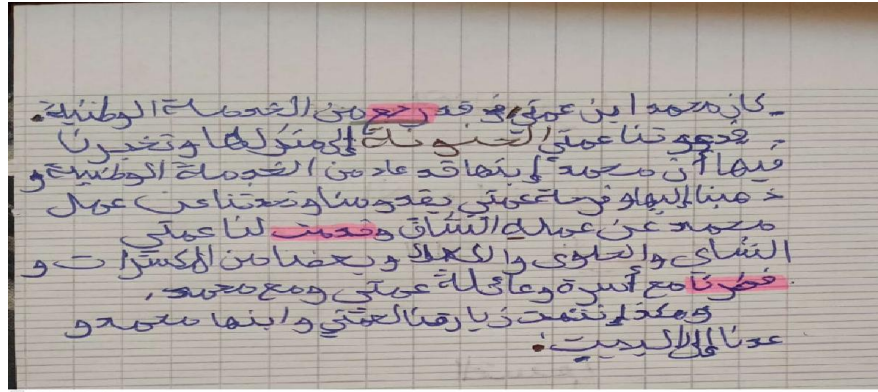 كان محمد ابن عمتي قد رجع من الخدمة الوطنية.
فدعوتنا عمتي الحنونة إلى منزلها وتخبرنا
فيها أن محمد إبنها قد عاد من الخدمة الوطنية و
ذهبنا إليها وفرحة عمتي بقدومنا وتحدثنا عن عمل
محمد عن عمله الشاق وقدمت لنا عمتي
الشاي والحلوى و وبعضا من المكسرات و
فضرنا مع أسرة وعائلة عمتي ومع محمد.
وهكذا إنتهت زيارتنا لعمتي وابنها محمد و
عدنا إلى البيت.